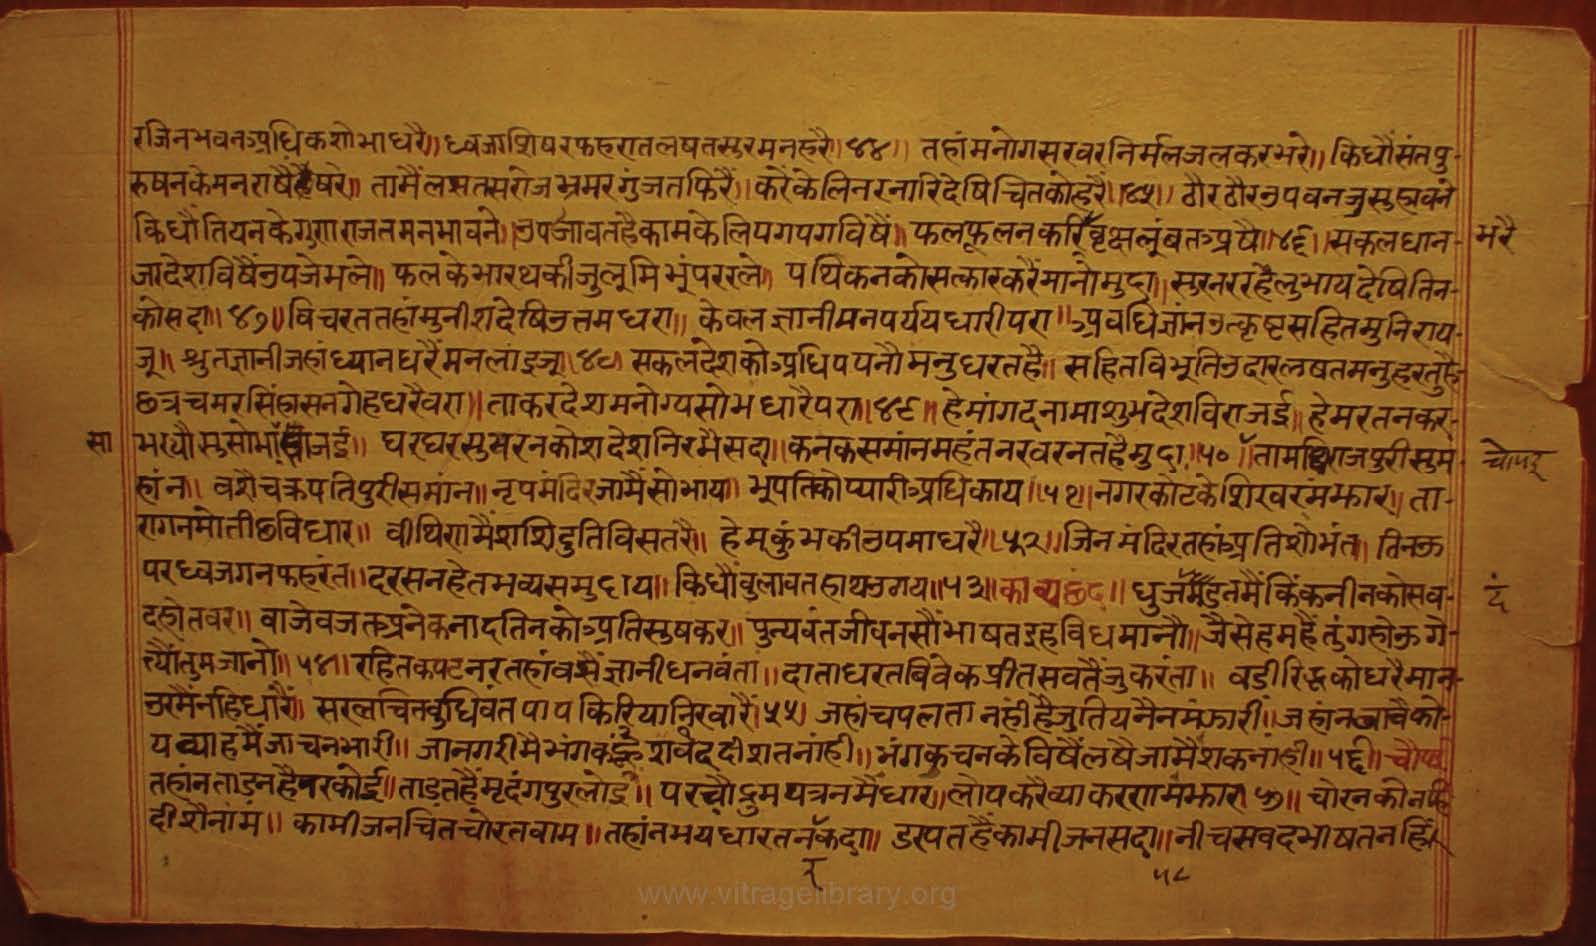 रजिनभवनअधिकशोभाधरै॥ ध्वजाशिषरफहरातलषतसुरमनहरै॥४४॥ तहांमनोगसरवरनिर्मलजलकरभरे॥ किधौंसंतपु-
रुषनकेमनराषैहैषरे॥ तामैंलसतसरोजभ्रमरगुंजतफिरैं॥ करैंकेलिनरनारिदेषिचितकोहरैं॥४५॥ ठौरठौरउपवनजुसुहावने
किधौंतियनकेगुणराजतमनभावने॥ उपजावतहैकामकेलिपगपगविषैं॥ फलफूलनकरिवृक्षलूंबतअषै॥४६॥ सकलधान- भरै
जादेशविषैंउपजेभले॥ फलकेभारथकीजुलूमिभूंपररले॥ पथिकनकोसत्कारकरैंमानोमुदा॥ सुरनररहैलुभायदेषितिन-
कोसदा॥४७॥ विचरततहांमुनीशदेषिउत्तमधरा॥ केवलज्ञानीमनपर्ययधारीपरा॥ अवधिज्ञांनउत्कृष्टसहितमुनिराय-
जू॥ श्रुतज्ञानीजहांध्यानधरैंमनलाइजू॥४८॥ सकलदेशकोअधिपपनौमनुधरतहै॥ सहितविभूतिउदारलषतमनुहरतुहै
छत्रचमरसिंहासनगेहधरैवरा॥ ताकरदेशमनोग्यसोभधारैपरा॥४९॥ हेमांगदनामाशुभदेशविराजई॥ हेमरतनकर-
सा भर्यौसुसोभाछाजई॥ घरघरसुषरनकोशदेशनिरभैसदा॥ कनकसमांनमहंतनरवरनतहैमुदा॥५०॥ तामधिराजपुरीसुम चौपइ
हांन॥ वशैचक्रपतिपुरीसमांन॥ नृपमंदिरजामैंसोभाय॥ भूपतिकोप्यारीअधिकाय॥५१॥ नगरकोटकेशिखरमंझार॥ ता-
रागनमोतीछविधार॥ वीथिणमैंशशिदुतिविसतरै॥ हेमकुंभकीउपमाधरै॥५२॥ जिनमंदिरतहांअतिशोभंत॥ तिनऊ
परध्वजगनफहरंत॥ दरसनहेतभव्यसमुदाय॥ किधौंवुलावतहाथउगय॥५३॥ काव्यछंद॥ धुजमैंकिंकनीनकोसव- दं
दहोतवर॥ वाजेवजतअनेकनादतिनकोअतिसुषकर॥ पुन्यवंतजीवनसौंभाषतइहविधमानौ॥ जैसेहमहैंतुंगहोऊगे
त्यौंतुमजानो॥५४॥ रहितकपटनरतहांवसैंज्ञानीधनवंता॥ दाताधरतबिवेकप्रीतसवतैंजुकरंता॥ वडीरिद्धकोधरैमान-
उरमैंनहिधारैं॥ सरलचितबुधिवंतपापकिरियानिरवारैं॥५५॥ जहांचपलतानहीहैजुतियनैनमंझारी॥ जहांनजावैको-
यव्याहमैंजाचनभारी॥ जानगरीमैभंगशवददीशतनांही॥ भंगकुचनकेविषैंलषैजामैंशकनांही॥५६॥ चौपई
तहांनताडनहैनरकोई॥ ताडतहैंमृदंगपुरलोई॥ परचौद्रुमपत्रनमैंधार॥ लोपकरैव्याकरणमंझार॥५७॥ चोरनकोनहि
दीशैनांम॥ कामीजनचितचोरतवाम॥ तहांनभयधारतनकदा॥ डरपतहैंकामीजनसदा॥ नीचसवदभाषतनहि
र ५८
www.vitragelibrary.org